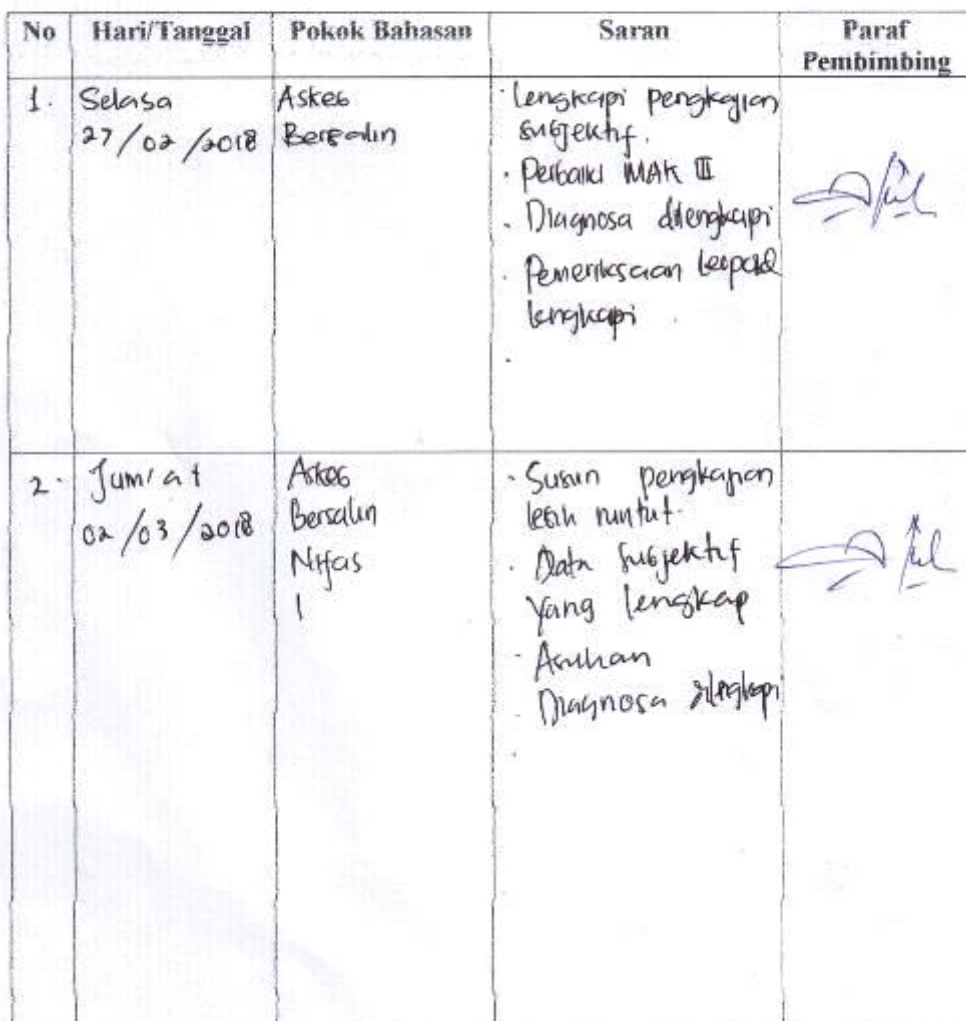 No Hari/Tanggal Pokok Bahasan Saran Paraf
Pembimbing
1. Selasa
27/02/2018
Askeb
Bersalin
· Lengkapi pengkajian
subjektif.
· Perbaiki MAK III
· Diagnosa dilengkapi
· Pemeriksaan Leopold
lengkapi
2. Jum'at
02/03/2018
Askeb
Bersalin
Nifas
1
· Susun pengkajian
lebih runtut.
· Data Subjektif
yang lengkap
· Asuhan
Diagnosa dilengkapi